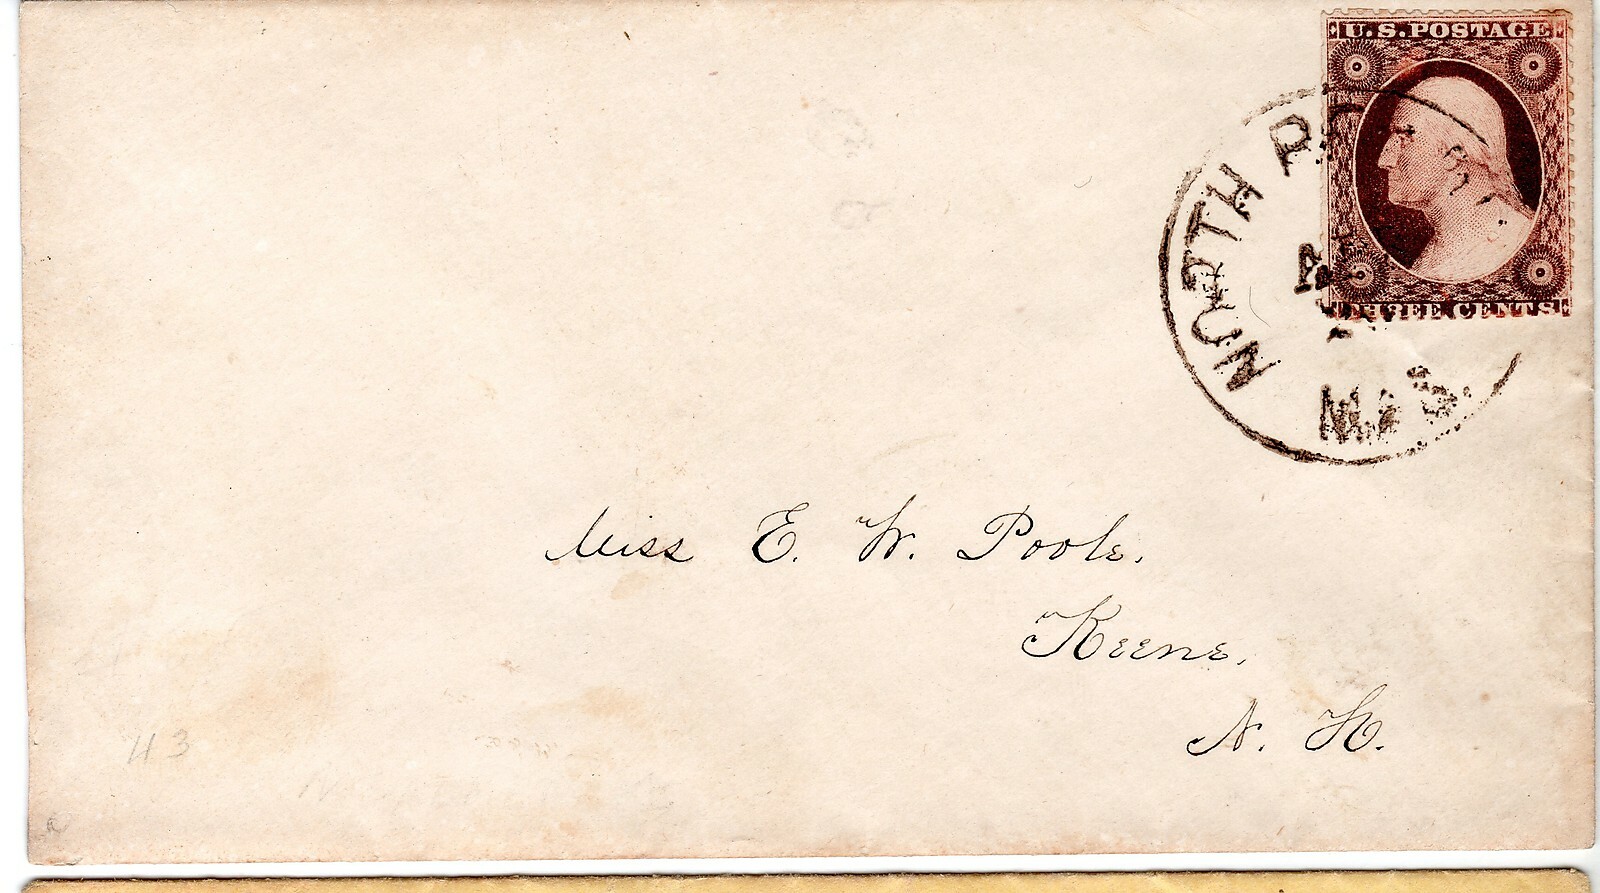 U.S. POSTAGE
THREE CENTS
NORTH
MAS.
Miss E. W. Poole.
Keene,
N. H.
43